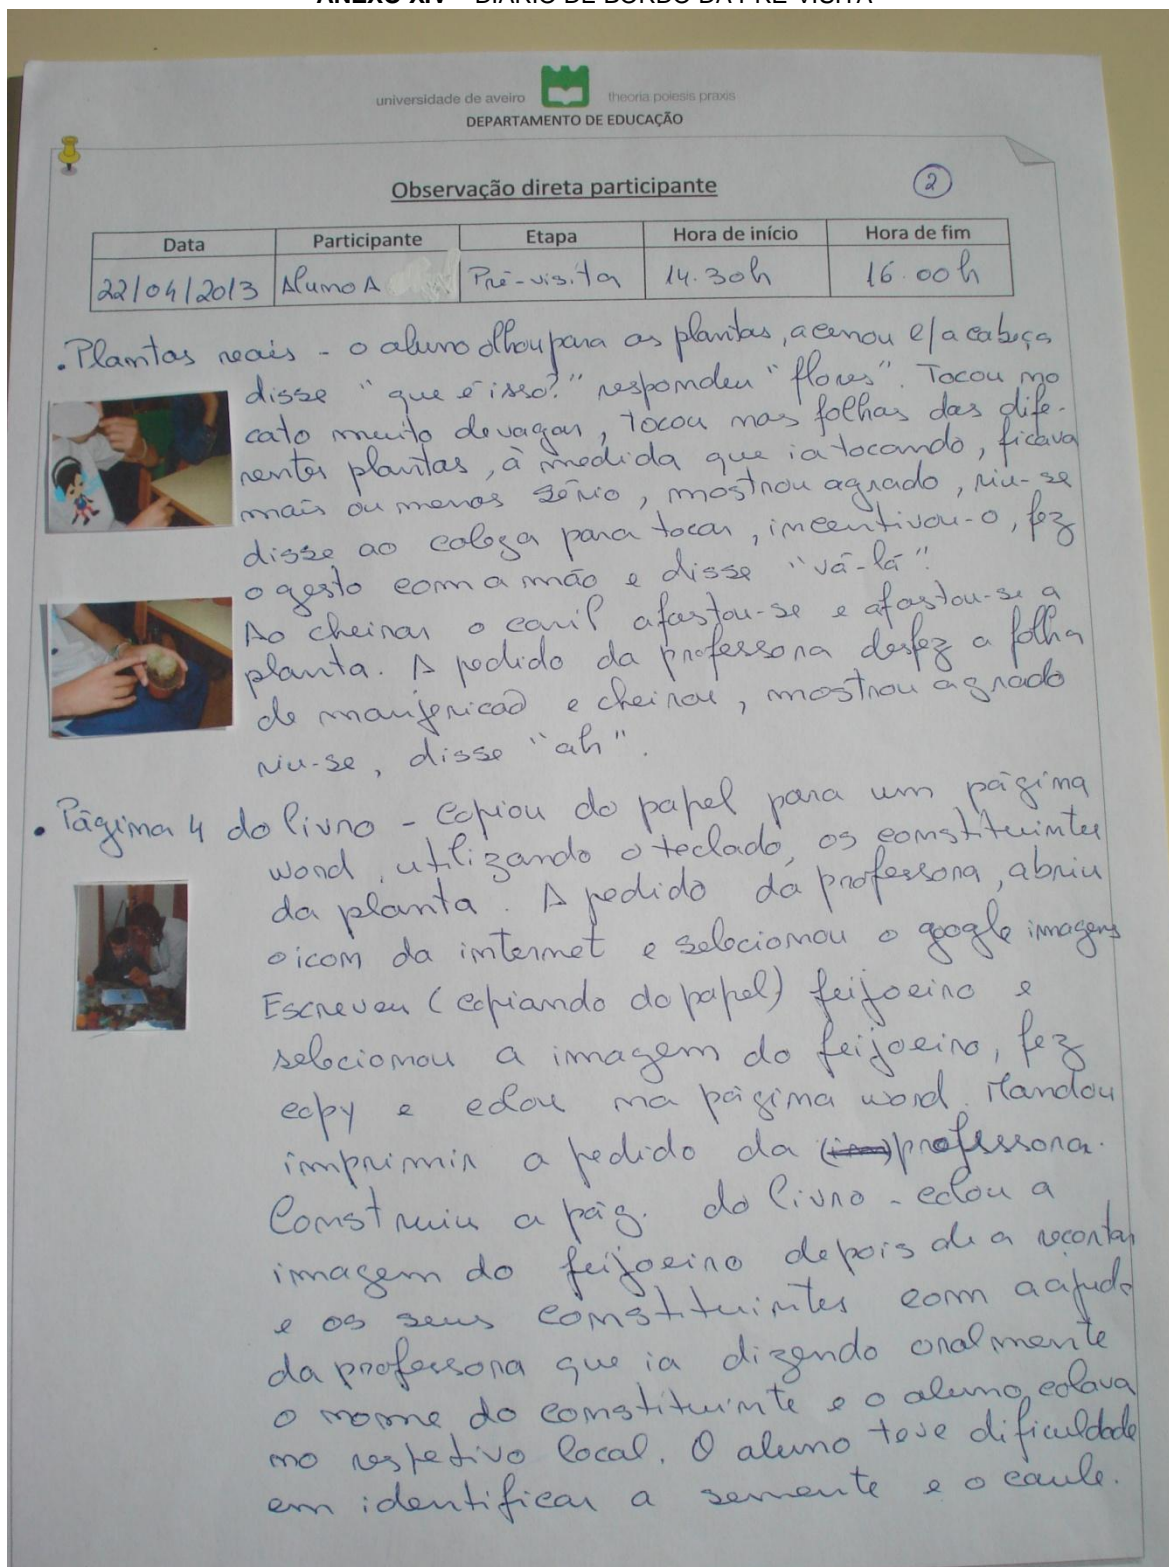 ANEXO XIV – DIÁRIO DE BORDO DA PRÉ-VISITA
universidade de aveiro theoria poiesis praxis
DEPARTAMENTO DE EDUCAÇÃO
Observação direta participante
2
Data Participante Etapa Hora de início Hora de fim
22/04/2013 Aluno A Pré-visita 14.30h 16.00h
. Plantas reais - o aluno olhou para as plantas, acenou c/ a cabeça
disse "que é isso?" respondeu "flores". Tocou no
cato muito devagar, tocou nas folhas das dife-
rentes plantas, à medida que ia tocando, ficava
mais ou menos sério, mostrou agrado, riu-se
disse ao colega para tocar, incentivou-o, fez
o gesto com a mão e disse "vá-lá".
Ao cheirar o caril afastou-se e afastou-se a
planta. A pedido da professora desfez a folha
de manjericão e cheirou, mostrou agrado
riu-se, disse "ah".
. Página 4 do livro - Copiou do papel para um página
word, utilizando o teclado, os constituintes
da planta. A pedido da professora, abriu
o icon da internet e selecionou o google imagens
Escreveu (copiando do papel) feijoeiro e
selecionou a imagem do feijoeiro, fez
copy e colou na página word. Mandou
imprimir a pedido da (im) professora.
Construiu a pág. do livro - colou a
imagem do feijoeiro depois de a recortar
e os seus constituintes com a ajuda
da professora que ia dizendo oralmente
o nome do constituinte e o aluno colava
no respetivo local. O aluno teve dificuldade
em identificar a semente e o caule.